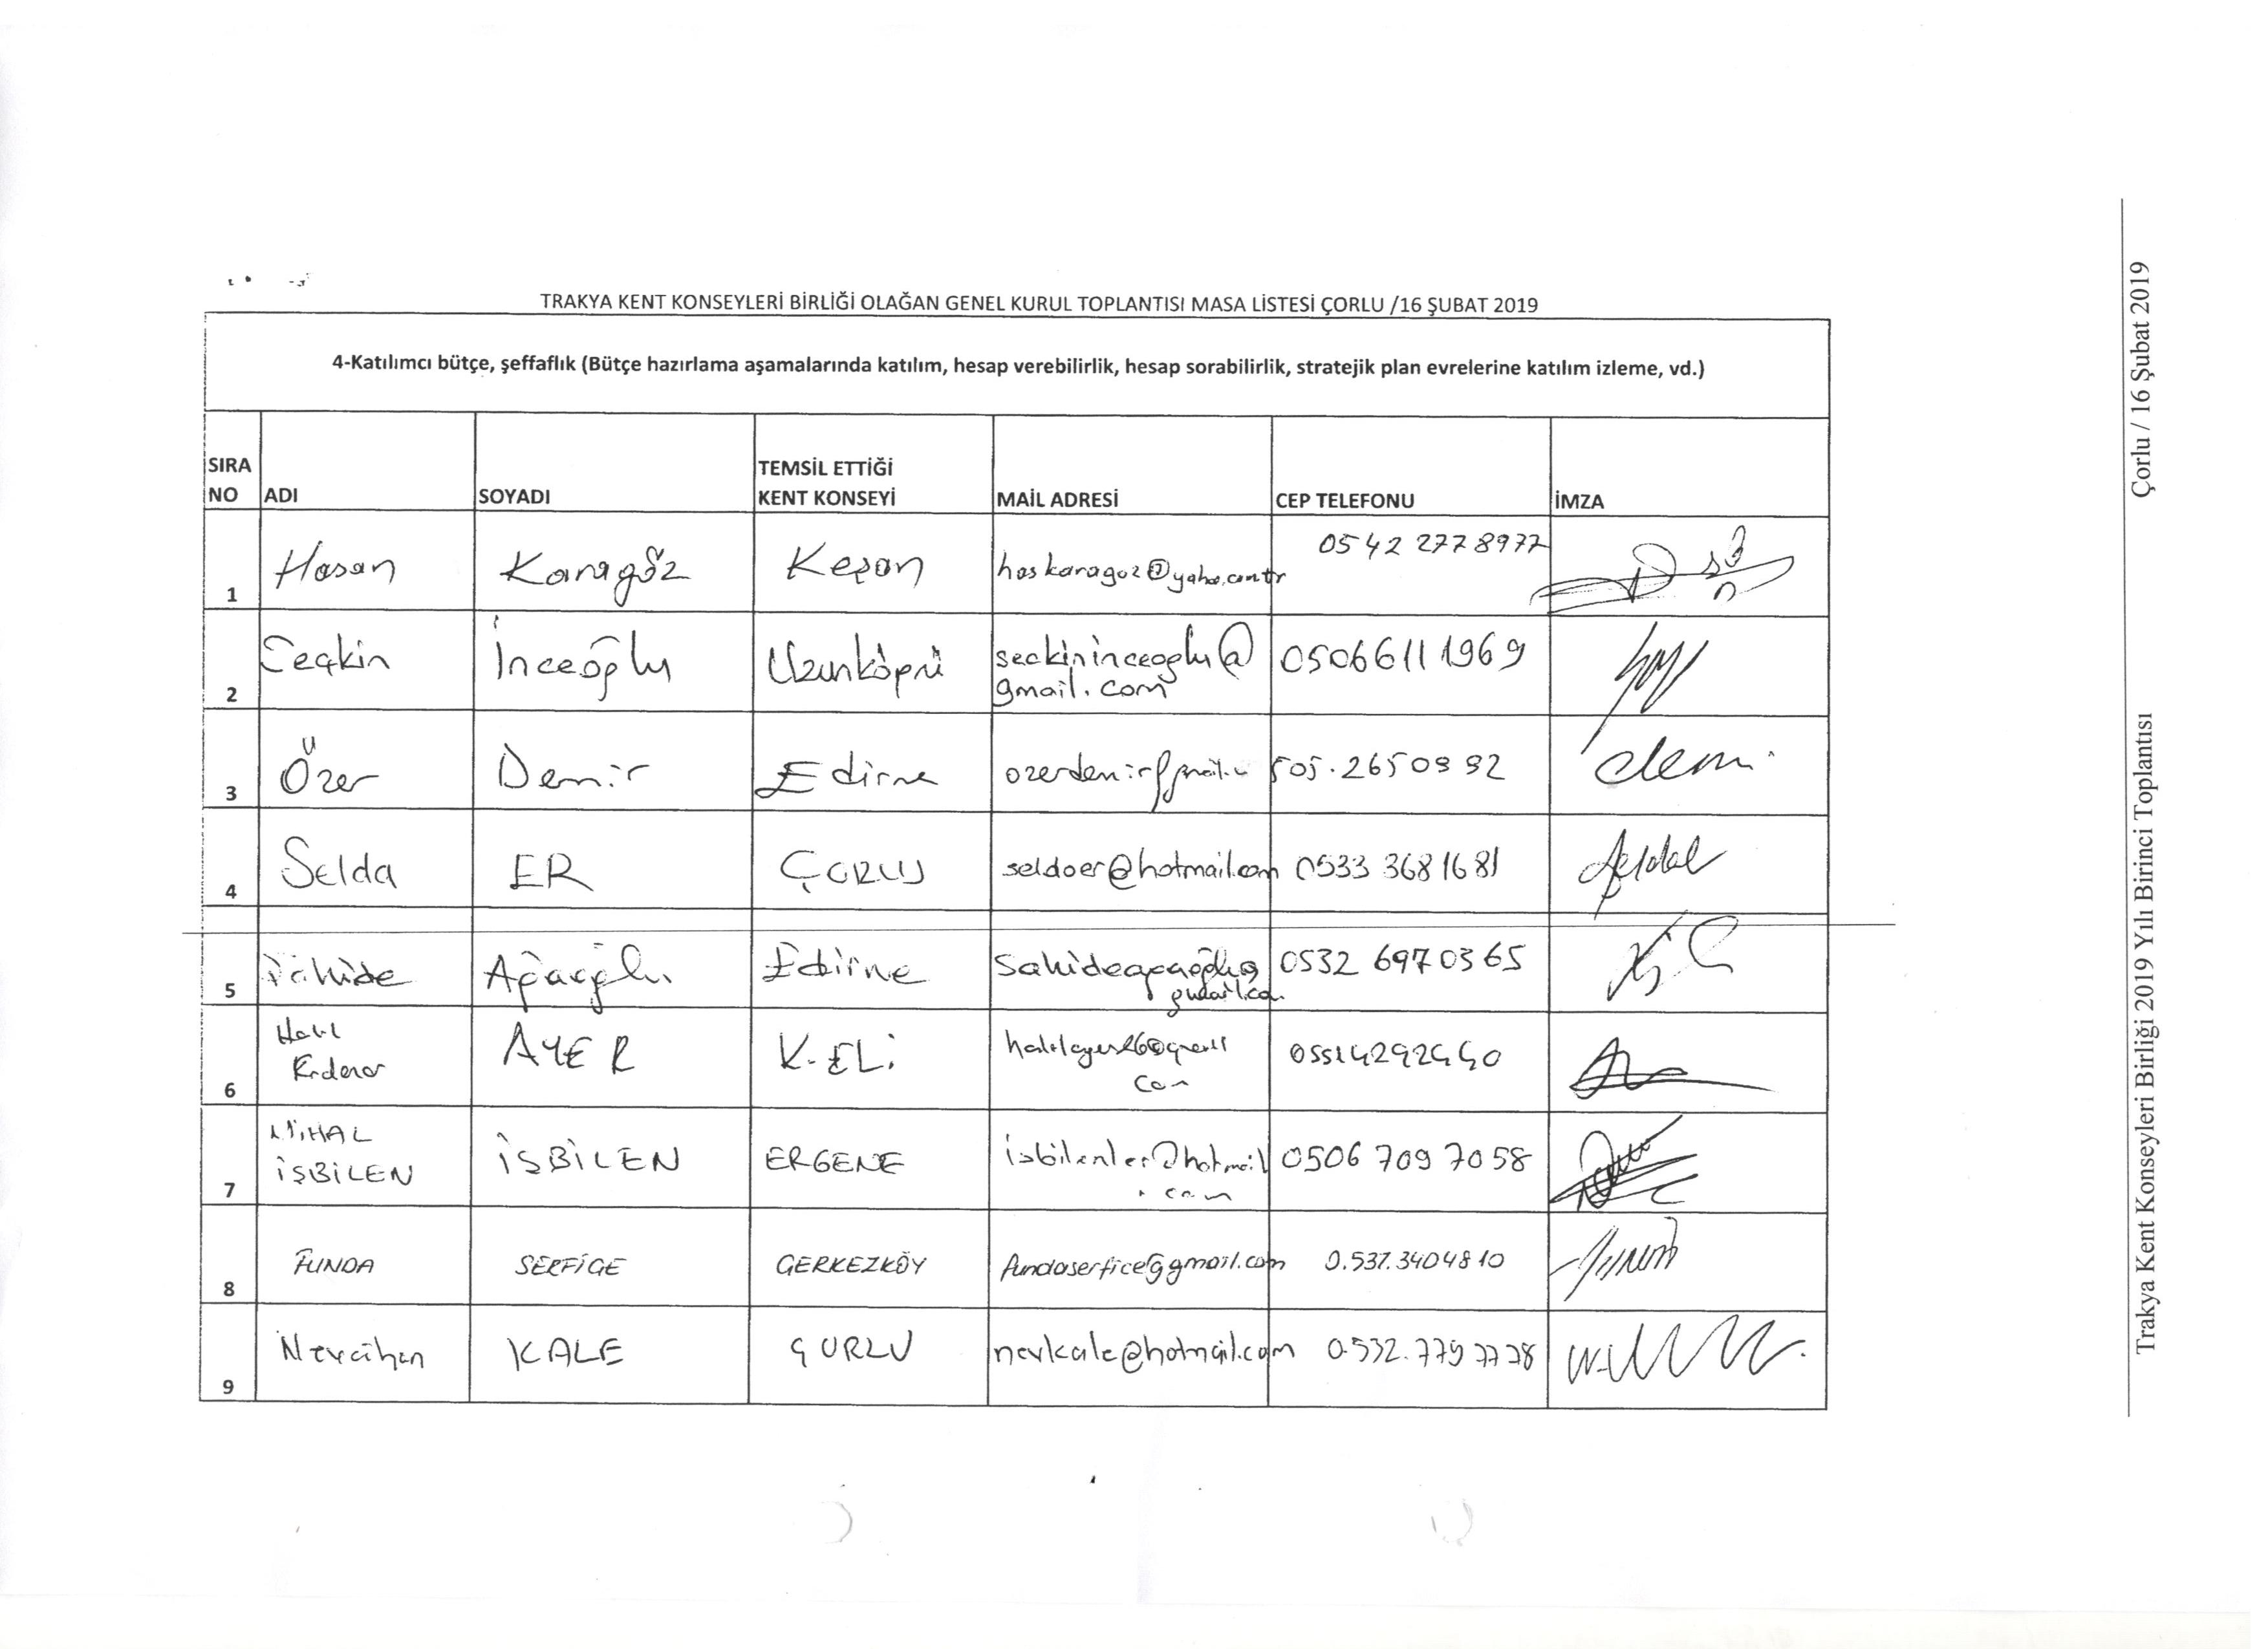 TRAKYA KENT KONSEYLERİ BİRLİĞİ OLAĞAN GENEL KURUL TOPLANTISI MASA LİSTESİ ÇORLU /16 ŞUBAT 2019
4-Katılımcı bütçe, şeffaflık (Bütçe hazırlama aşamalarında katılım, hesap verebilirlik, hesap sorabilirlik, stratejik plan evrelerine katılım izleme, vd.)
SIRA NO ADI SOYADI TEMSİL ETTİĞİ KENT KONSEYİ MAİL ADRESİ CEP TELEFONU İMZA
1 Hasan Karagöz Keşan haskaragoz@yahoo.com.tr 0542 277 8977
2 Seçkin İnceoğlu Uzunköprü seckininceoglu@
gmail.com 05066111969
3 Özer Demir Edirne 505.2650992
4 Selda ER ÇORLU seldaer@hotmail.com 0533 3681681
5 Şahide Ağaoğlu Edirne 0532 6970365
6 Halil
AYER K.ELİ 05514292440
7 NİHAL
İŞBİLEN İŞBİLEN ERGENE isbilenler@hotmail
.com 0506 709 7058
8 FUNDA SERFİCE ÇERKEZKÖY fundaserfice@gmail.com 0.537.3404810
9 Nevcihan KALE ÇORLU nevkale@hotmail.com 0.532.779 77 78
Çorlu / 16 Şubat 2019
Trakya Kent Konseyleri Birliği 2019 Yılı Birinci Toplantısı